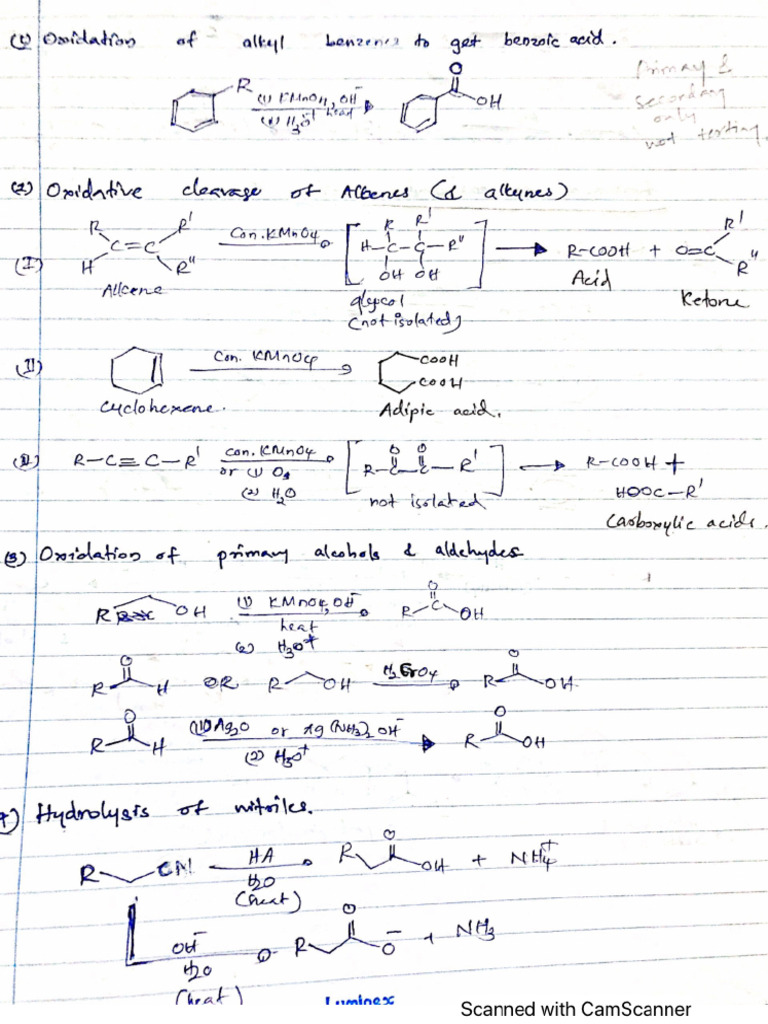 (1) Oxidation of alkyl benzenes to get benzoic acid.
R (1) KMnO4, OH- heat (2) H3O+ O OH
Primary & secondary only not tertiary
(2) Oxidative cleavage of Alkenes (& alkynes)
(I) R H C=C R' R" Con. KMnO4 [ R R' H-C-C-R" OH OH ] R-COOH + O=C R' R"
Alkene glycol (not isolated) Acid Ketone
(II) Con. KMnO4 COOH COOH
Cyclohexene. Adipic acid.
R-C≡C-R' con. KMnO4 or (1) O3 (2) H2O [ O O R-C-C-R' ] R-COOH + HOOC-R'
not isolated Carboxylic acids.
(3) Oxidation of primary alcohols & aldehydes
R OH (1) KMnO4, OH- heat (2) H3O+ O R-C OH
O R H OR R OH H2CrO4 O R OH
O R H (1) Ag2O or Ag(NH3)2 OH- (2) H3O+ O R OH
4) Hydrolysis of nitriles.
R CN HA H2O (heat) R O OH + NH4+
OH- H2O (heat) R O O- + NH3
Luminex
Scanned with CamScanner